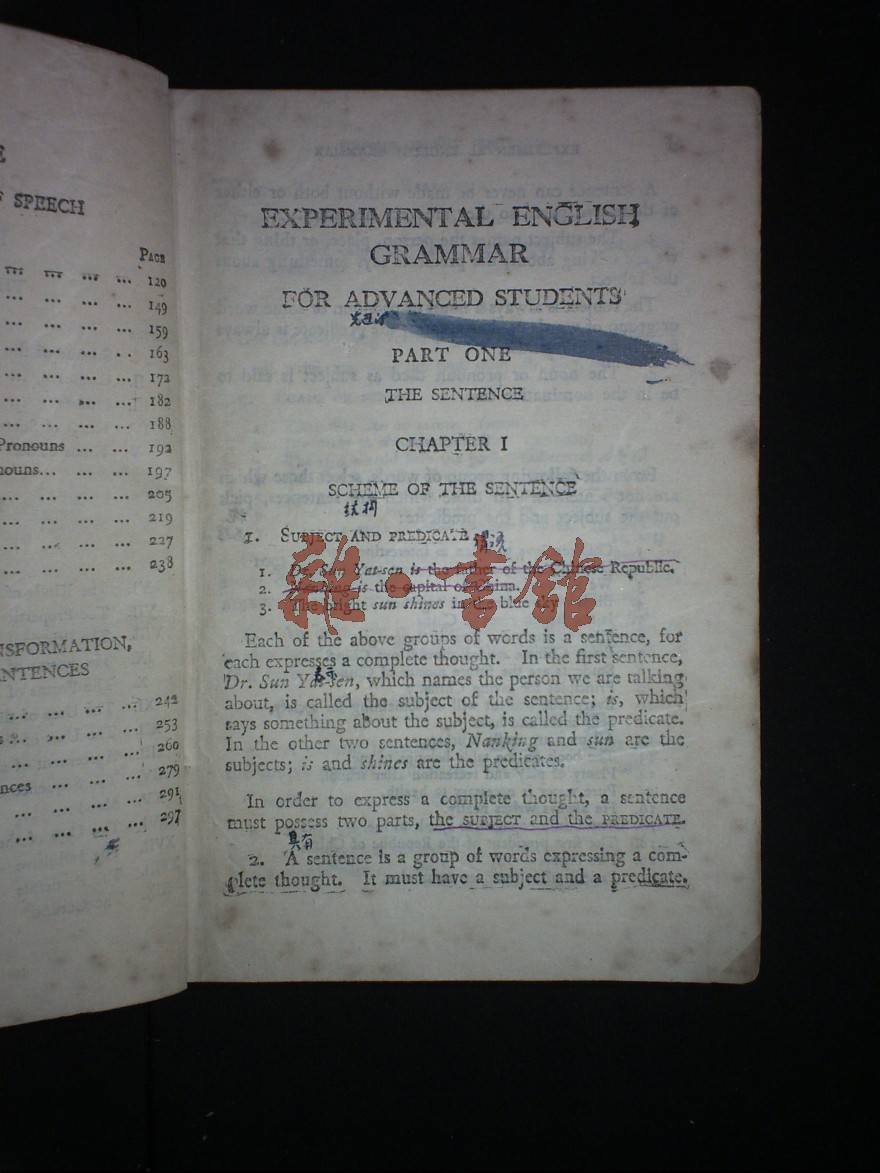 E
F SPEECH
PAGE
... ... ... ... 120
... ... 149
... ... ... ... 159
... ... ... .. 163
... ... ... ... 172
... ... ... ... 182
... ... ... ... 188
Pronouns ... ... 192
nouns... ... ... 197
... ... ... ... 205
... ... ... ... 219
... ... ... ... 227
... ... ... ... 238
NSFORMATION,
NTENCES
... ... ... ... 242
s ... ... ... ... 253
... ... ... ... 260
nces ... ... ... 279
... ... ... ... 291
... ... ... ... 297
EXPERIMENTAL ENGLISH
GRAMMAR
FOR ADVANCED STUDENTS
PART ONE
THE SENTENCE
CHAPTER I
SCHEME OF THE SENTENCE
结构
1. SUBJECT AND PREDICATE
1. Dr. Sun Yat-sen is the father of the Chinese Republic.
2. Nanking is the capital of China.
3. The bright sun shines in the blue sky
雜·書館
Each of the above groups of words is a sentence, for
each expresses a complete thought. In the first sentence,
Dr. Sun Yat-sen, which names the person we are talking
about, is called the subject of the sentence; is, which
says something about the subject, is called the predicate.
In the other two sentences, Nanking and sun are the
subjects; is and shines are the predicates.
In order to express a complete thought, a sentence
must possess two parts, the SUBJECT and the PREDICATE.
具有
2. A sentence is a group of words expressing a com-
plete thought. It must have a subject and a predicate.